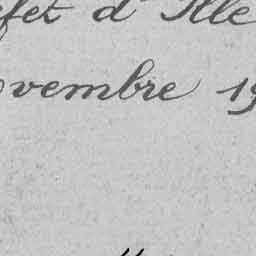 fet d'Ille
ovembre 19